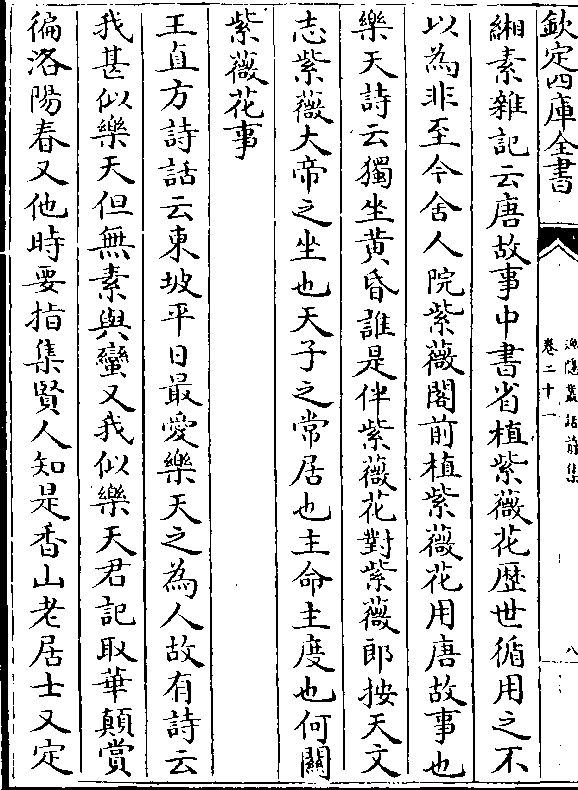 欽定四庫全書
漁隱叢話前集
卷二十一
八
緗素雜記云唐故事中書省植紫薇花歴世循用之不
以為非至今舍人院紫薇閣前植紫薇花用唐故事也
樂天詩云獨坐黄昏誰是伴紫薇花對紫薇郎按天文
志紫薇大帝之坐也天子之常居也主命主度也何關
紫薇花事
王直方詩話云東坡平日最愛樂天之為人故有詩云
我甚似樂天但無素與蠻又我似樂天君記取華顛賞
徧洛陽春又他時要指集賢人知是香山老居士又定